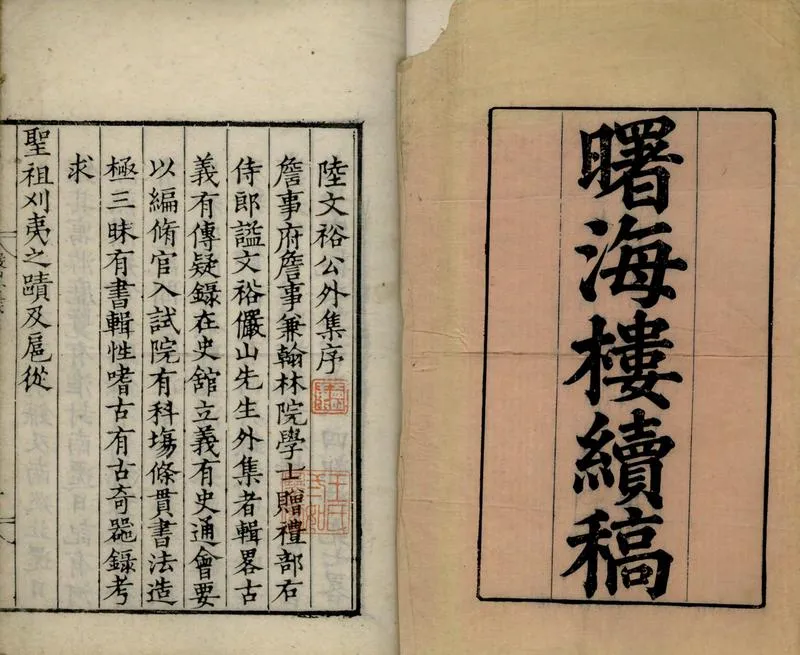 曙海樓續稿
陸文裕公外集序
詹事府詹事兼翰林院學士贈禮部右
侍郎謚文裕儼山先生外集者輯畧古
義有傳疑錄在史舘立義有史通會要
以編脩官入試院有科塲條貫書法造
極三昧有書輯性嗜古有古奇器錄考
求
聖祖刈夷之蹟及扈從